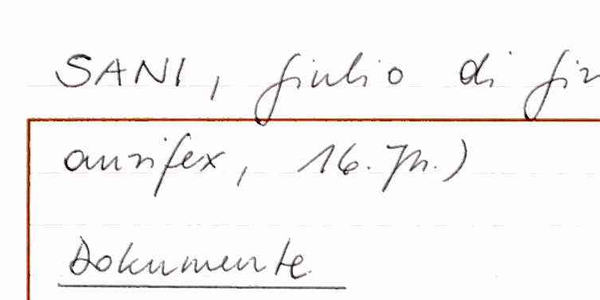 SANI, Giulio di
aurifex, 16. Jh.)
Dokumente